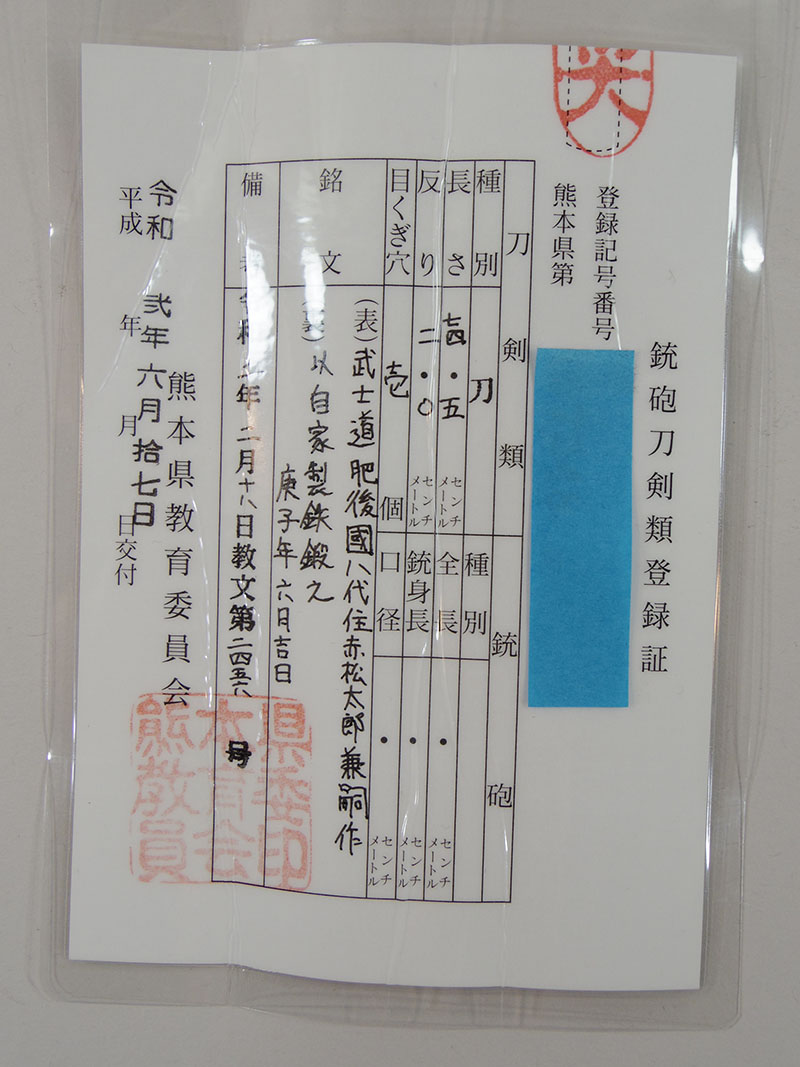 銃砲刀剣類登録証
登録記号番号
熊本県第
刀剣類
種別
刀
長さ
七四・五
センチメートル
反り
二・〇
センチメートル
目くぎ穴
壱個
銘文
(表)武士道肥後國八代住赤松太郎兼嗣作
(裏)以自家製鉄鍛之
庚子年六月吉日
備考
令和 年二月十八日教文第二四五六号
銃砲
種別
全長
・
センチメートル
銃身長
・
センチメートル
口径
・
センチメートル
熊本県教育委員会
令和弐年六月拾七日
平成 年 月 日交付
熊本県教育委員会印